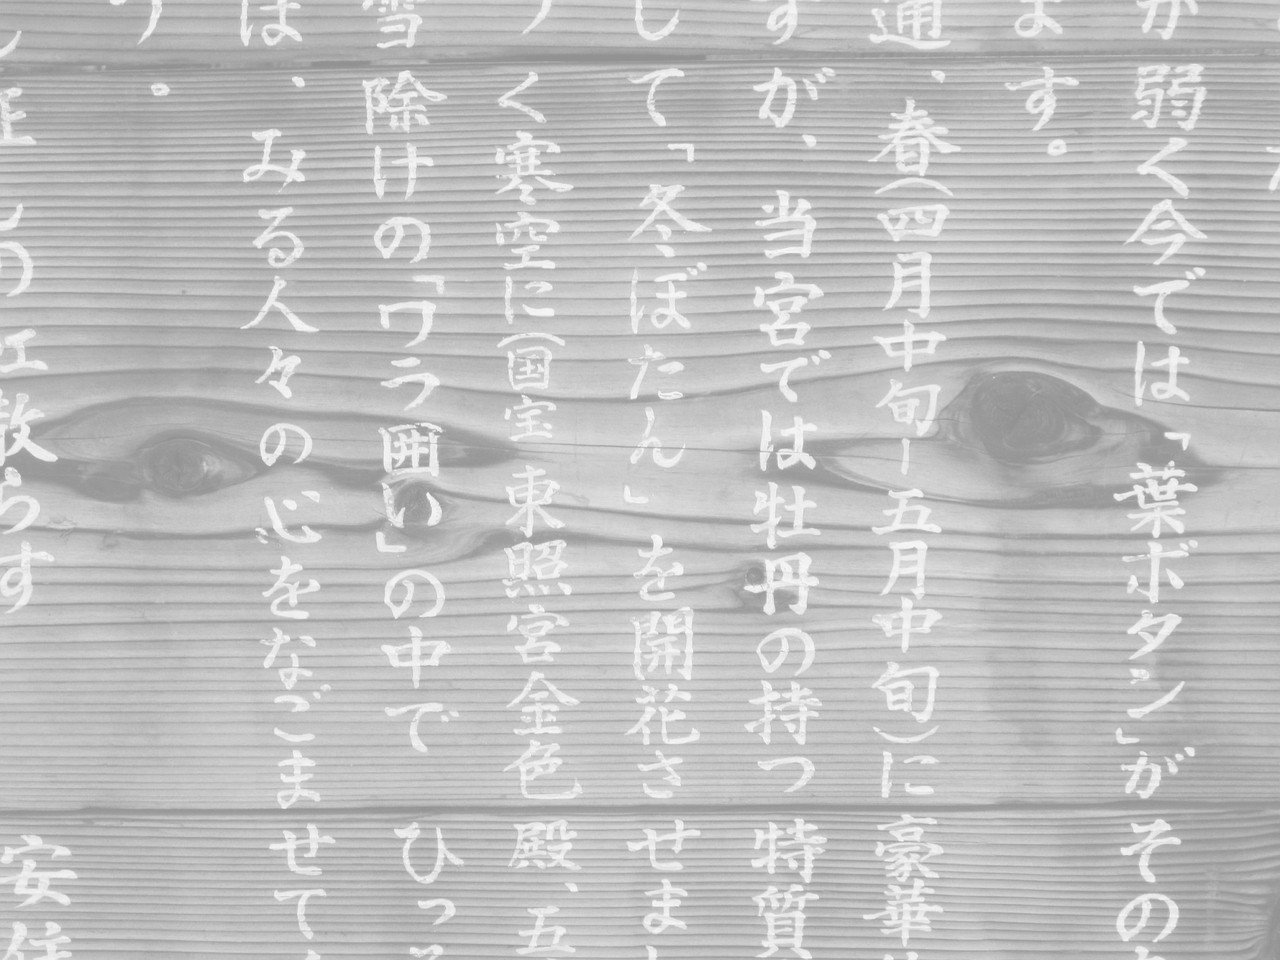 弱く今では「葉ボタン」がその
ます。
通、春(四月中旬ー五月中旬)に豪華
すが、当宮では牡丹の持つ特質
して「冬ぼたん」を開花させま
く寒空に(国宝 東照宮金色殿、五
雪除けの「ワラ囲い」の中でひっ
は、みる人々の心をなごませて
う。
散らす 安住